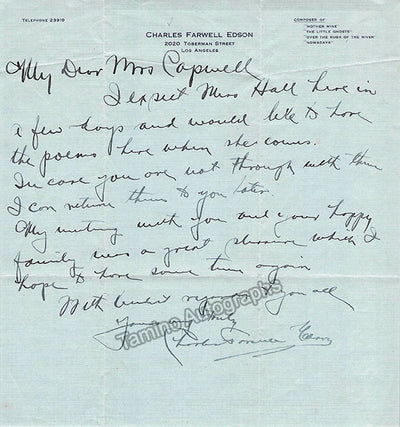 TELEPHONE 23919
CHARLES FARWELL EDSON
2020 TOBERMAN STREET
LOS ANGELES
COMPOSER OF
"MOTHER MINE"
"THE LITTLE GHOSTS"
"OVER THE RUGA OF THE RIVER"
"NOWADAYS"
My Dear Mrs Capwell
I expect Miss Hall here in
a few days and would like to have
the poems here when she comes.
In case you are not through with them
I can return them to you later.
My meeting with you and your happy
family was a great pleasure which I
hope to have some time again
With kindest regards to you all
Yours very truly
Charles Farwell Edson
Tamino Autographs